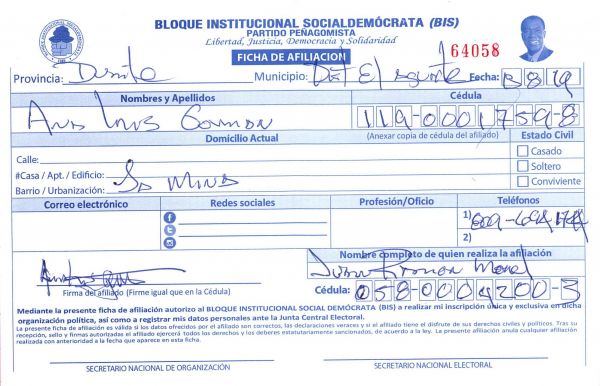 BLOQUE INSTITUCIONAL SOCIALDEMÓCRATA (BIS)
PARTIDO PEÑAGOMISTA
Libertad, Justicia, Democracia y Solidaridad
FICHA DE AFILIACIÓN
64058
Provincia: Municipio: Fecha: 13 8 19
Nombres y Apellidos Cédula
Ana Luis 119-0001759-8
Domicilio Actual (Anexar copia de cédula del afiliado) Estado Civil
Calle: Casado
#Casa / Apt. / Edificio: Soltero
Barrio / Urbanización: La Mina Conviviente
Correo electrónico Redes sociales Profesión/Oficio Teléfonos
1)
2)
Nombre completo de quien realiza la afiliación
Juan Ramon
Firma del afiliado (Firme igual que en la Cédula) Cédula: 058-0004200-3
Mediante la presente ficha de afiliación autorizo al BLOQUE INSTITUCIONAL SOCIAL DEMÓCRATA (BIS) a realizar mi inscripción única y exclusiva en dicha
organización política, así como a registrar mis datos personales ante la Junta Central Electoral.
La presente ficha de afiliación es válida si los datos ofrecidos por el afiliado son correctos, las declaraciones veraces y si el afiliado tiene el disfrute de sus derechos civiles y políticos. Tras su
recepción, sello y firmas autorizadas el afiliado ejercerá todos los derechos y los deberes estatutariamente sancionados, de acuerdo a la ley. La presente afiliación anula cualquier afiliación
realizada con anterioridad a la fecha que aparece en esta ficha.
SECRETARIO NACIONAL DE ORGANIZACIÓN SECRETARIO NACIONAL ELECTORAL